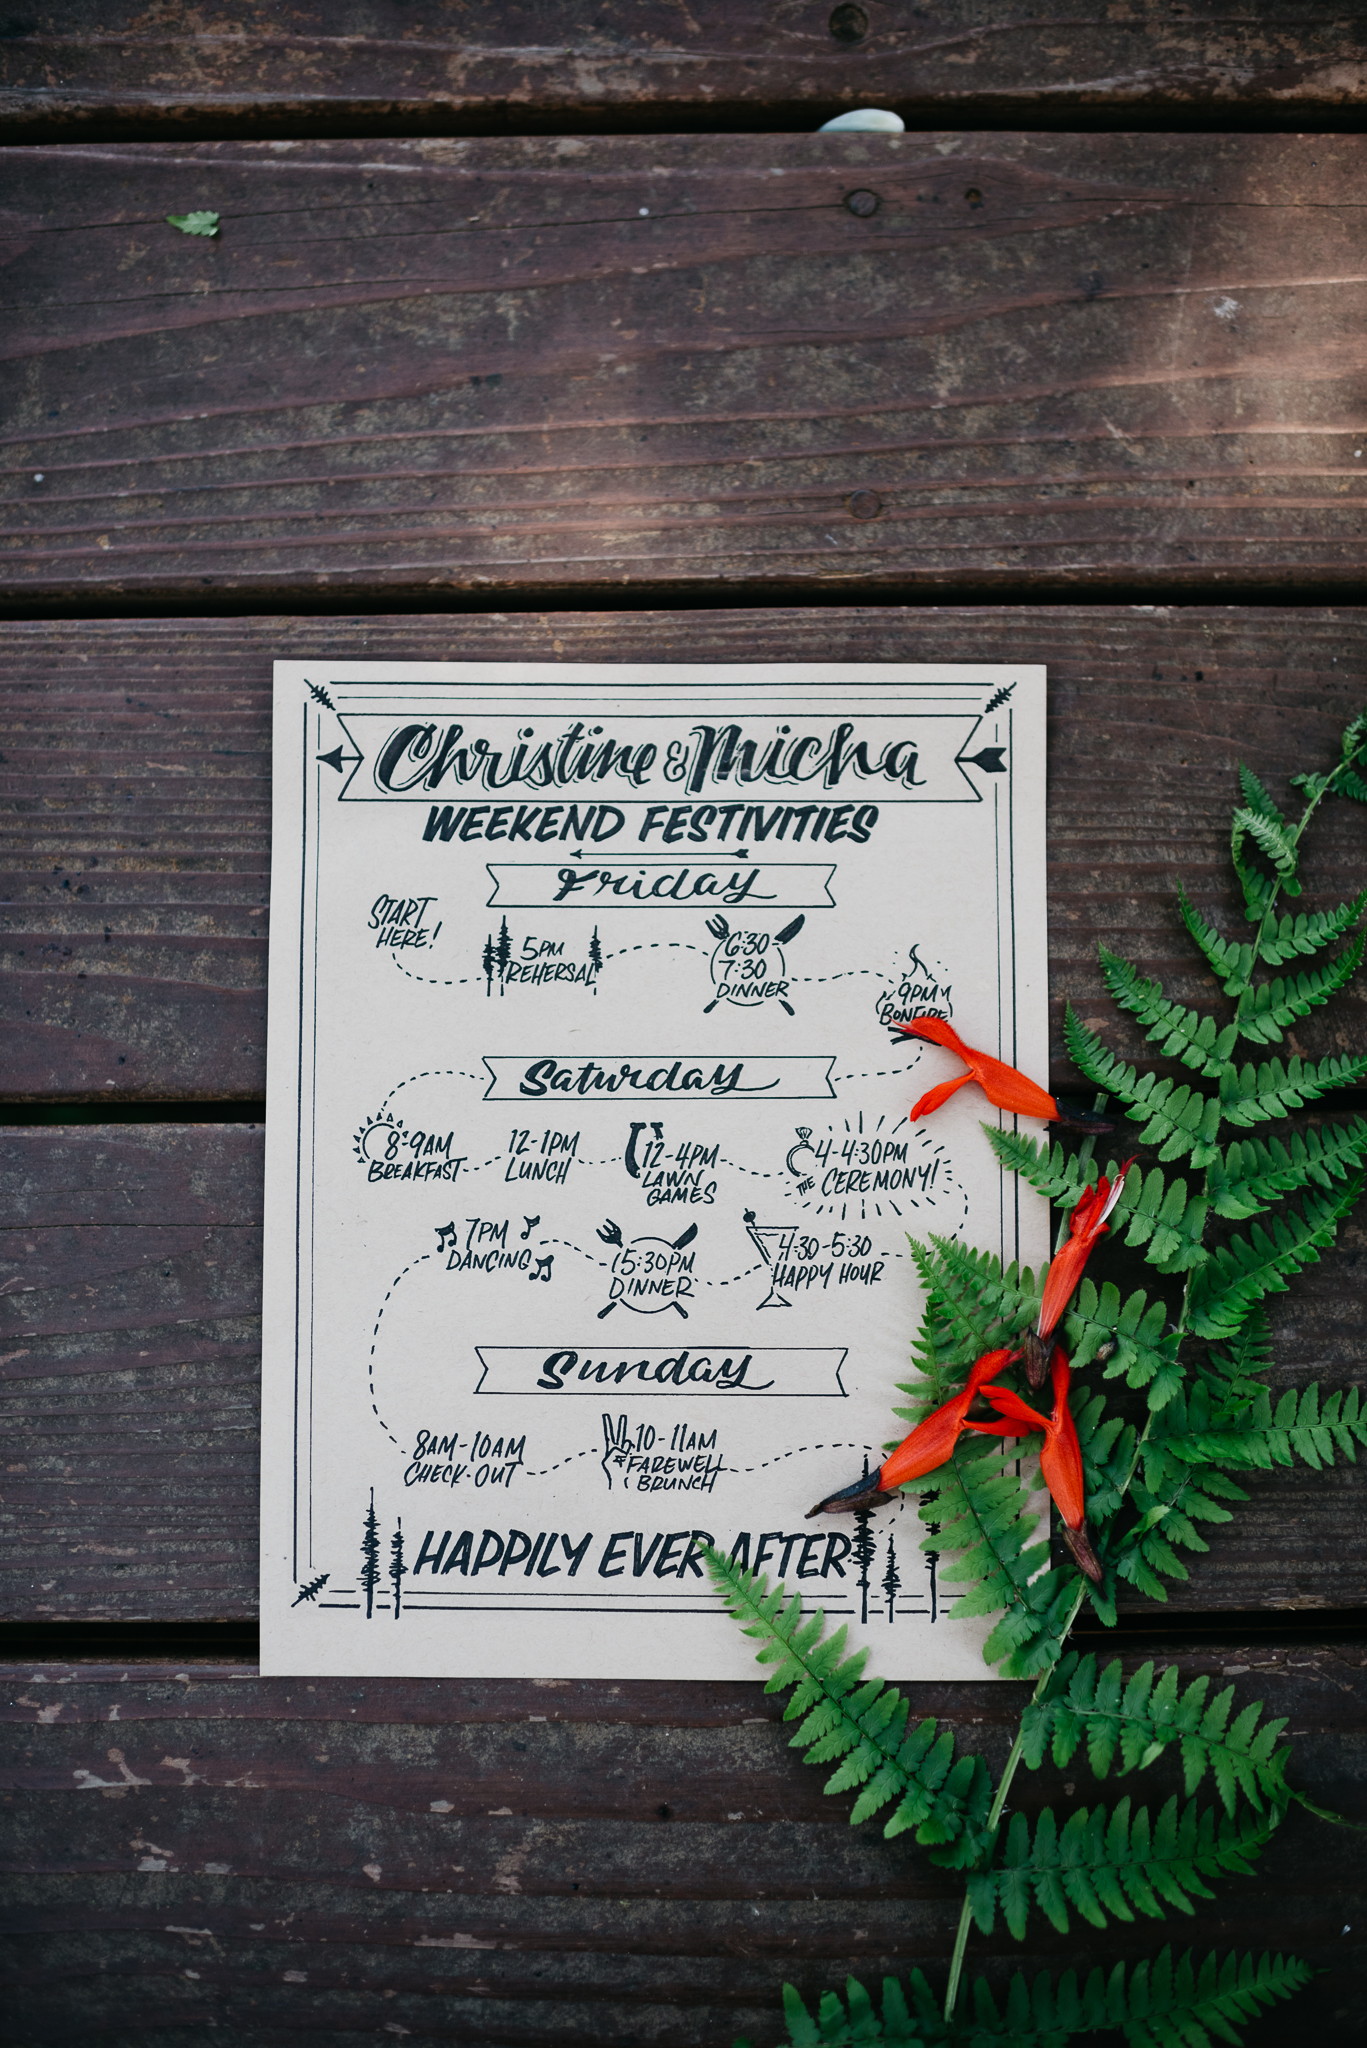 Christine & Micha
WEEKEND FESTIVITIES
Friday
START
HERE!
5PM
REHERSAL
6:30
7:30
DINNER
9PM
BONFIRE
Saturday
8-9AM
BREAKFAST
12-1PM
LUNCH
12-4PM
LAWN
GAMES
4-4:30PM
THE CEREMONY!
4:30-5:30
HAPPY HOUR
5:30PM
DINNER
7PM
DANCING
Sunday
8AM-10AM
CHECK-OUT
10-11AM
FAREWELL
BRUNCH
HAPPILY EVER AFTER